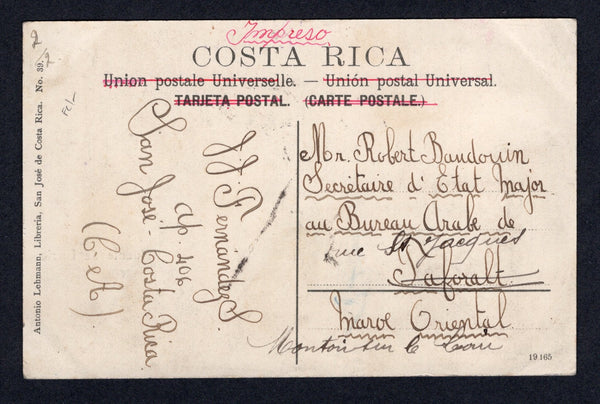 Impreso
COSTA RICA
Union postale Universelle. — Unión postal Universal.
TARJETA POSTAL. (CARTE POSTALE.)
Antonio Lehmann, Librería, San José de Costa Rica. No. 39.
JJ. Fernández S.
ap. 406
San José - Costa Rica
(C. A)
Mr. Robert Baudouin
Secrétaire d'Etat Major
au Bureau Arabe de
rue St Jacques
Taforalt
Maroc Oriental
Montoir sur le Loir
19165